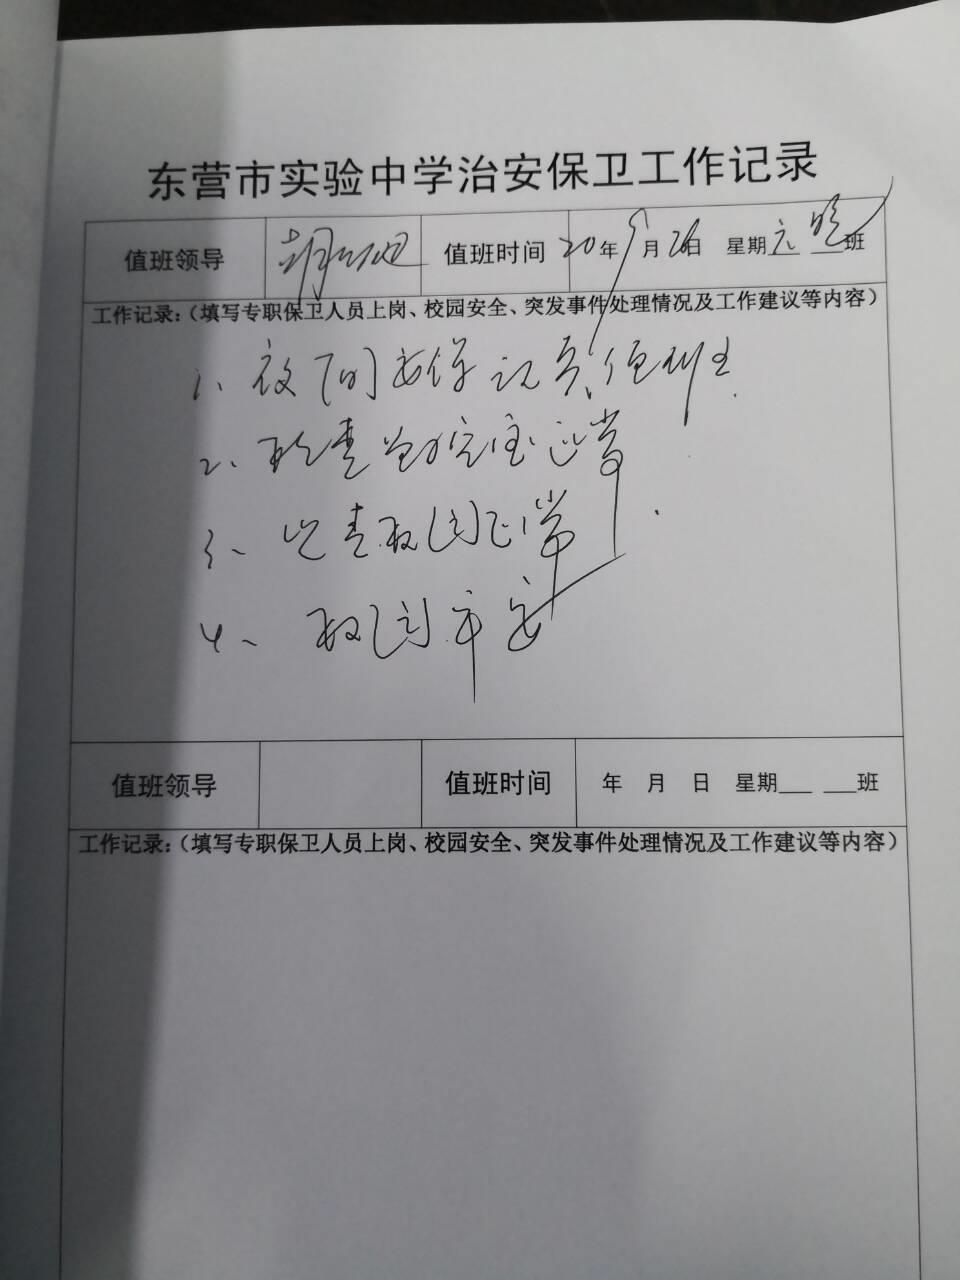 东营市实验中学治安保卫工作记录
值班领导 值班时间 20年9月26日 星期六 晚班
工作记录：（填写专职保卫人员上岗、校园安全、突发事件处理情况及工作建议等内容）
1、夜间安保 员值班.
2、检查 正常
3、 查校园正常.
4、校园平安
值班领导 值班时间 年 月 日 星期___ ___班
工作记录：（填写专职保卫人员上岗、校园安全、突发事件处理情况及工作建议等内容）